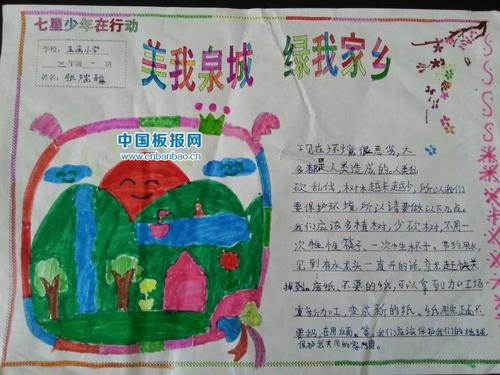 七星少年在行动
学校: 玉函小学
三年级 一 班
姓名: 张瑞雅
美我泉城 绿我家乡
中国板报网
www.cnbanbao.cn
现在环境很恶劣,大
多都是人类造成的。人类乱
砍乱伐,树木越来越少,所以我们
要保护环境,所以请要做以下几点。
我们应该多植树,少砍树木,不用一
次性性筷子、一次性杯子。节约用水,
见到有水龙头一直开的话,应赶快关
掉。废纸、不要的纸,可以拿到加工场
重新加工,变成新的纸。纸用完正面不
要扔,在用反面。等,我们应该保护我们的地球,
保护我共同的家园。